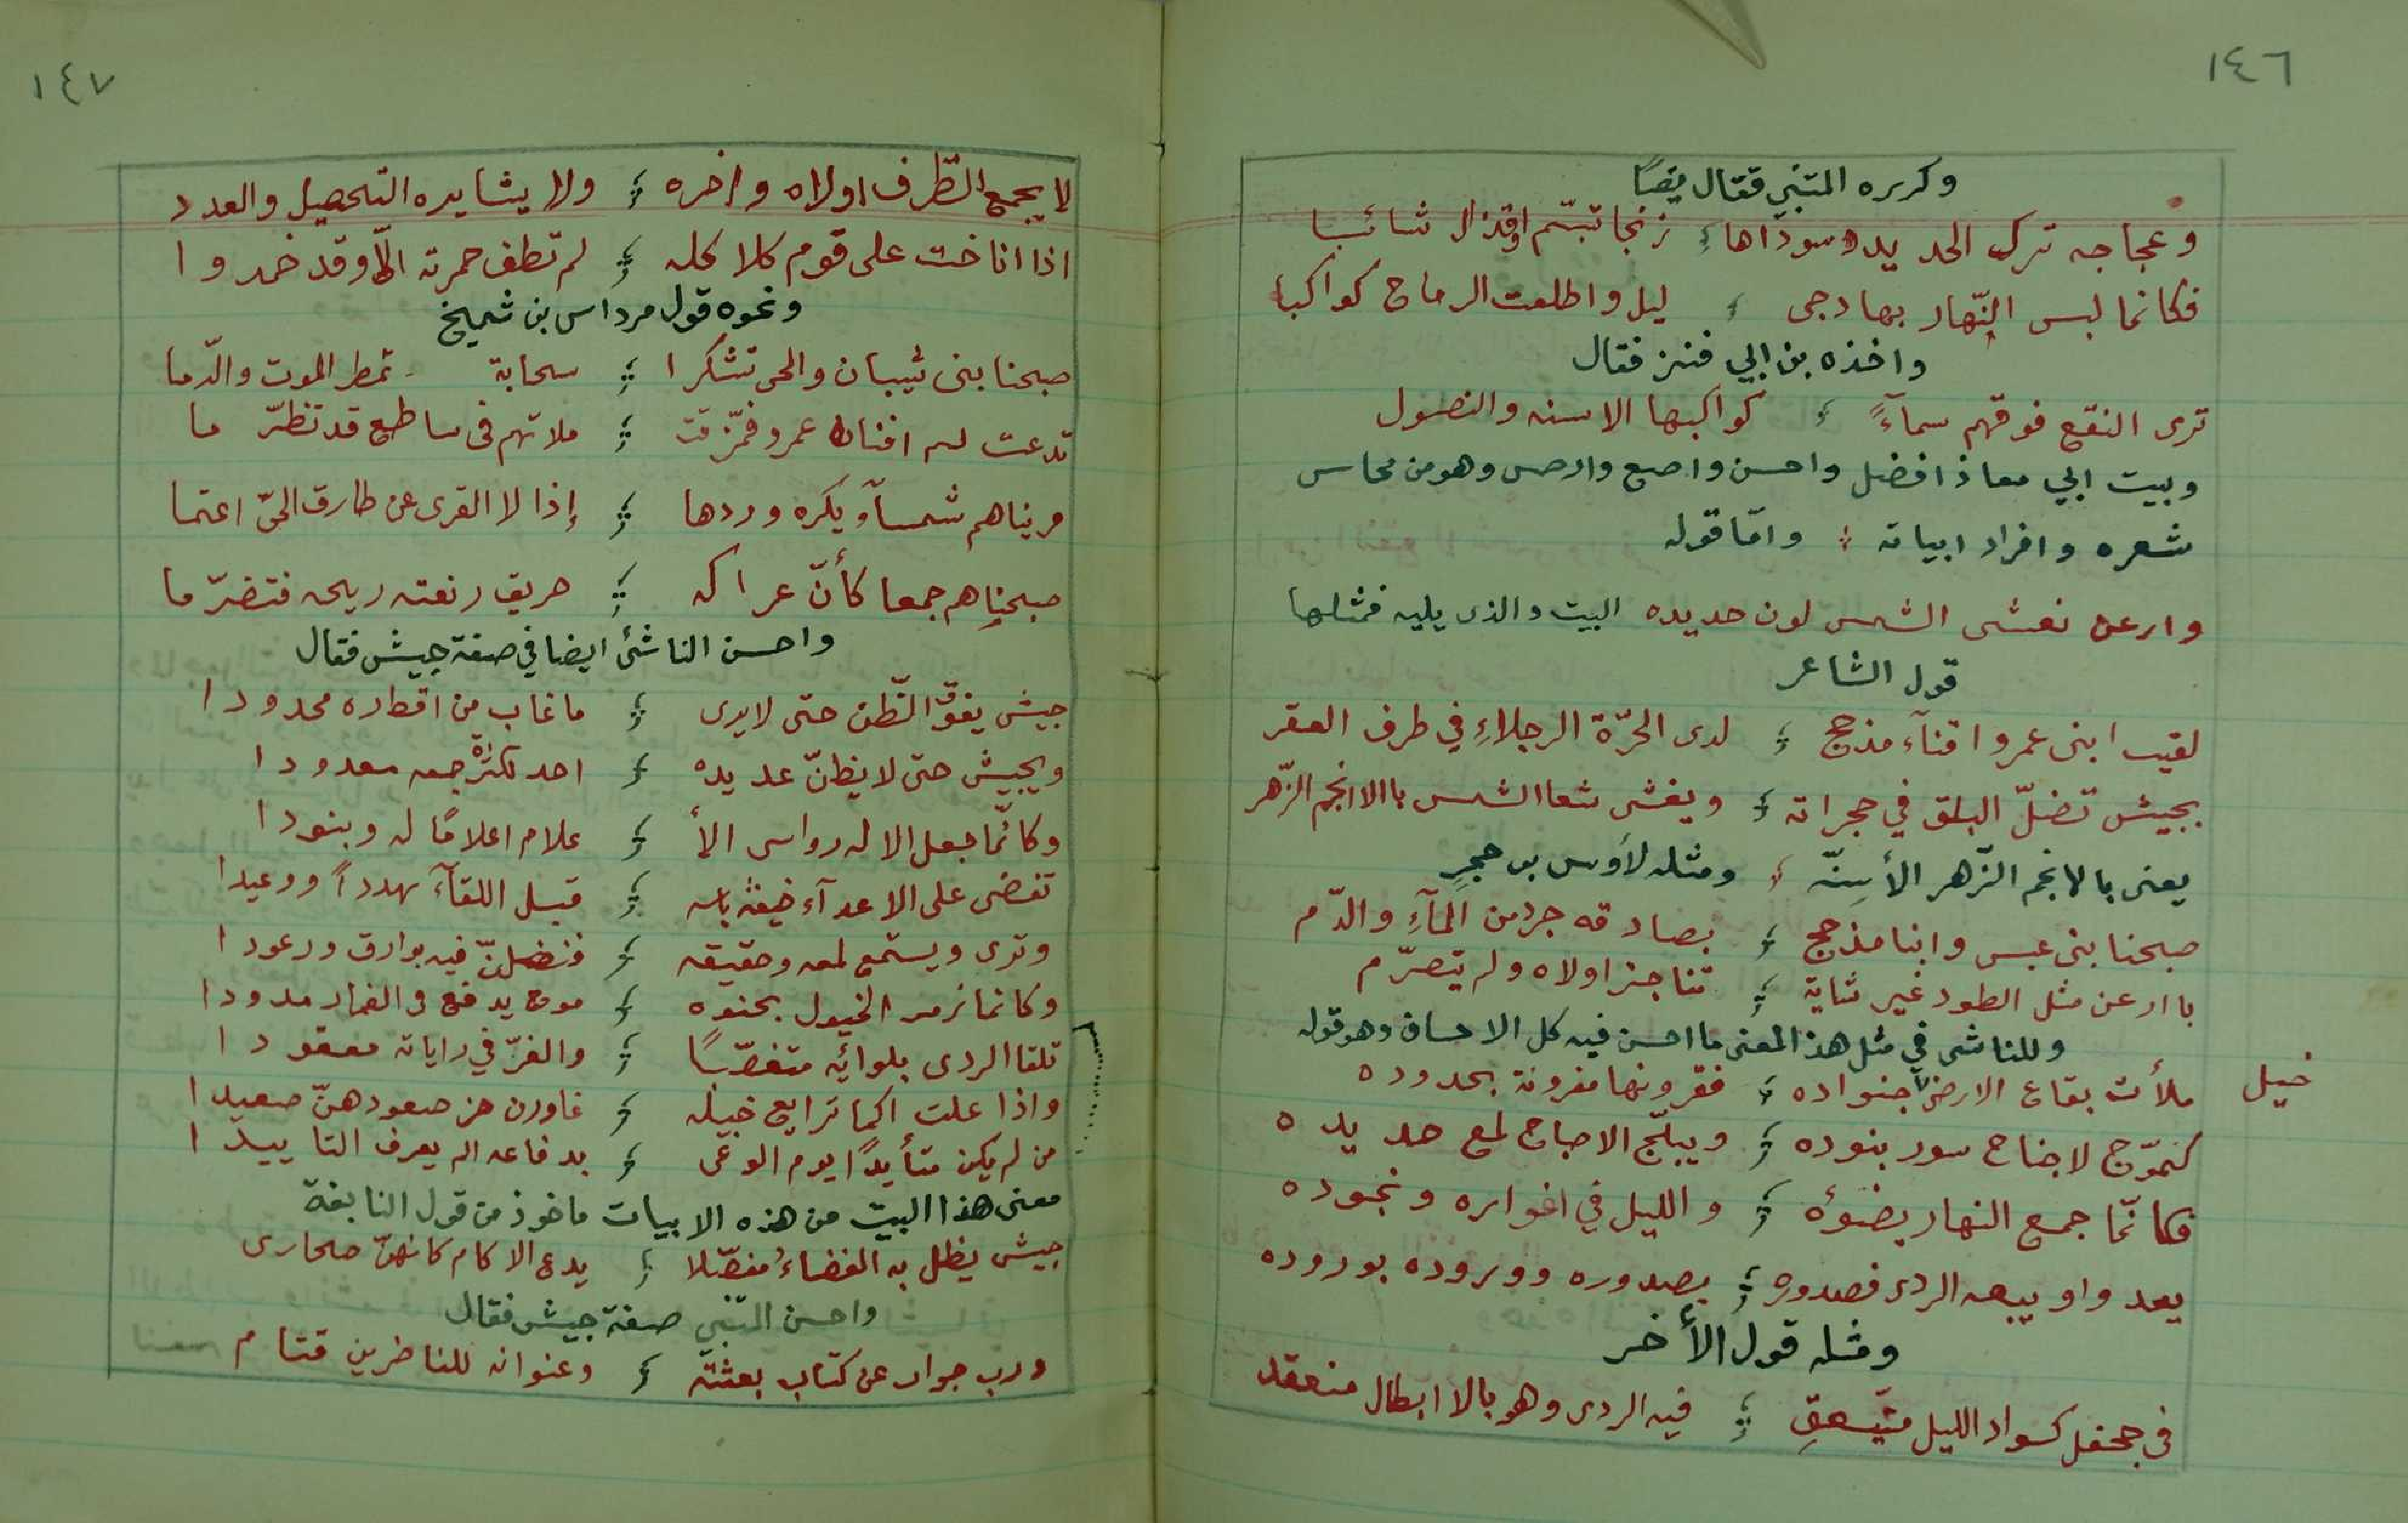 ١٤٦
وكرره المتنبي فقال يصبًا
وعجاجه ترك الحديد سوداها زنجا تبسّم اوقذال شائبا
فكانما لبس النّهار بها دجى ليل واطلعت الرماح كواكبا
واخذه بن ابي فنن فقال
ترى النقع فوقهم سمآءً كواكبها الاسنه والنصول
وبيت ابي معاذ افضل واحسن واصع وارصس وهو من محاسن
شعره وافراد ابياته واتما قوله
وارعن نغشى الشمس لون حديده البيت والذى يليه فمثلها
قول الشاعر
لقيب ابنى عمرو اقنآء مذحج لدى الحرّة الرجلاءِ في طرف العقر
بجيش تضلّ البلق في حجراته ويغشى شعا الشمس باالانجم الزّهر
يعنى بالانجم الزّهر الأسِنّه ومثله لأوس بن حجرٍ
صبحنا بنى عبس وابنا مذحج بصادقه جرد من المآءِ والدّم
باارعن مثل الطود غير ثابة تناجز اولاه ولم يتصرّم
وللناشى في مثل هذ المعنى ما احسن فيه كل الاحسان وهو قوله
ملأت بقاع الارض جنواده فقرونها مقرونة بحدوده
خيل
كنموّج لاجناح سود بنوده ويبلّج الاصباح لمع حديده
فكانّما جمع النهار بضوئه والليل في اغواره ونجوده
يعد واو يبعه الردى فصدوره بصدوره ووروده بوروده
ومثله قول الأخر
فى جحفل كسواد الليل متّسعقِ فيه الردى وهو بالا ابطال منعقد
١٤٧
لا يجمع الطّرف اولاه واخره ولا يشايده التحصيل والعدد
اذا اناخت على قوم كلاكله لم تطف حمرته الّا وقد خمدوا
ونحوه قول مرداس بن شميخ
صبحنا بنى شيبان والحى تشكرا سحابة تمطر الموت والدّما
تدعت له افنان عمرو فمّزقت ملاتهم فى ساطع قد تظرّما
مريناهم شمسآ ويكره وردها إذا لا القرى عن طارق الحىّ اعتما
صبحناهم جمعا كأنّ عراكه حريق رنعته ريحه فتضرّما
واحسن الناشئ ايضا في صفة جيش فقال
جيش يفوّق الظّن حتى لا يرى ما غاب من اقطاره محدودا
ويجيش حتى لا يظنّ عديده احد تكثّره جمعه معدودا
وكانّما جعل الاله رواسى الأ علام اعلامًا له وبنودا
تفضى على الاعدآء خيفة باسه قبل اللقآء تهدداً ووعيدا
وترى ويستمع لمعه وحقيقه فنضلنّ فيه بوارق ورعودا
وكانما زمر الخيول بجنوه موج يدفع فى الغمار مدودا
تلقا الردى بلوائه متغصّبًا والغرّ في راياته معقودا
واذا علت اكما ترايع خيله غاورن من صعودهنّ صعيدا
من لم يكن متأيدًا يوم الوغى بدفاعه لم يعرف التاييدا
معنى هذا البيت من هذه الابيات ماخوذ من قول النابغة
جيش يظل به الفضاءُ مفضّلا يدع الاكام كانهنّ صحارى
واحسن المتنبي صفة جيش فقال
ورب جواب عن كتاب بعثته وعنوانه للناظرين قتام